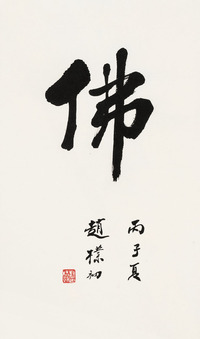 佛
丙子夏
趙樸初